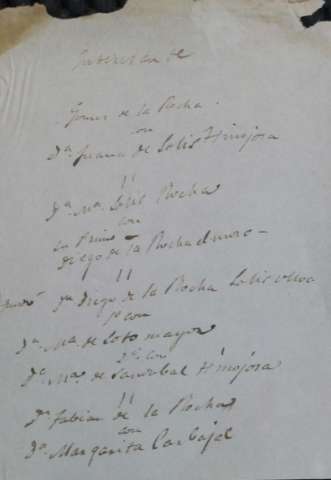 Gomez de la Rocha
con
Dª. Juana de Solis Hinojosa
"
Dª. Mª. Solis Rocha
con
su Primo
Diego de la Rocha el moro —
"
Dn Diego de la Rocha Solis Ulloa
1º con
Dª. Mª. de Sotomayor
2º con
Dª. Mª. de Sandobal Hinojosa
"
Dn fabian de la Rocha
con
Dª. Margarita Carbajal